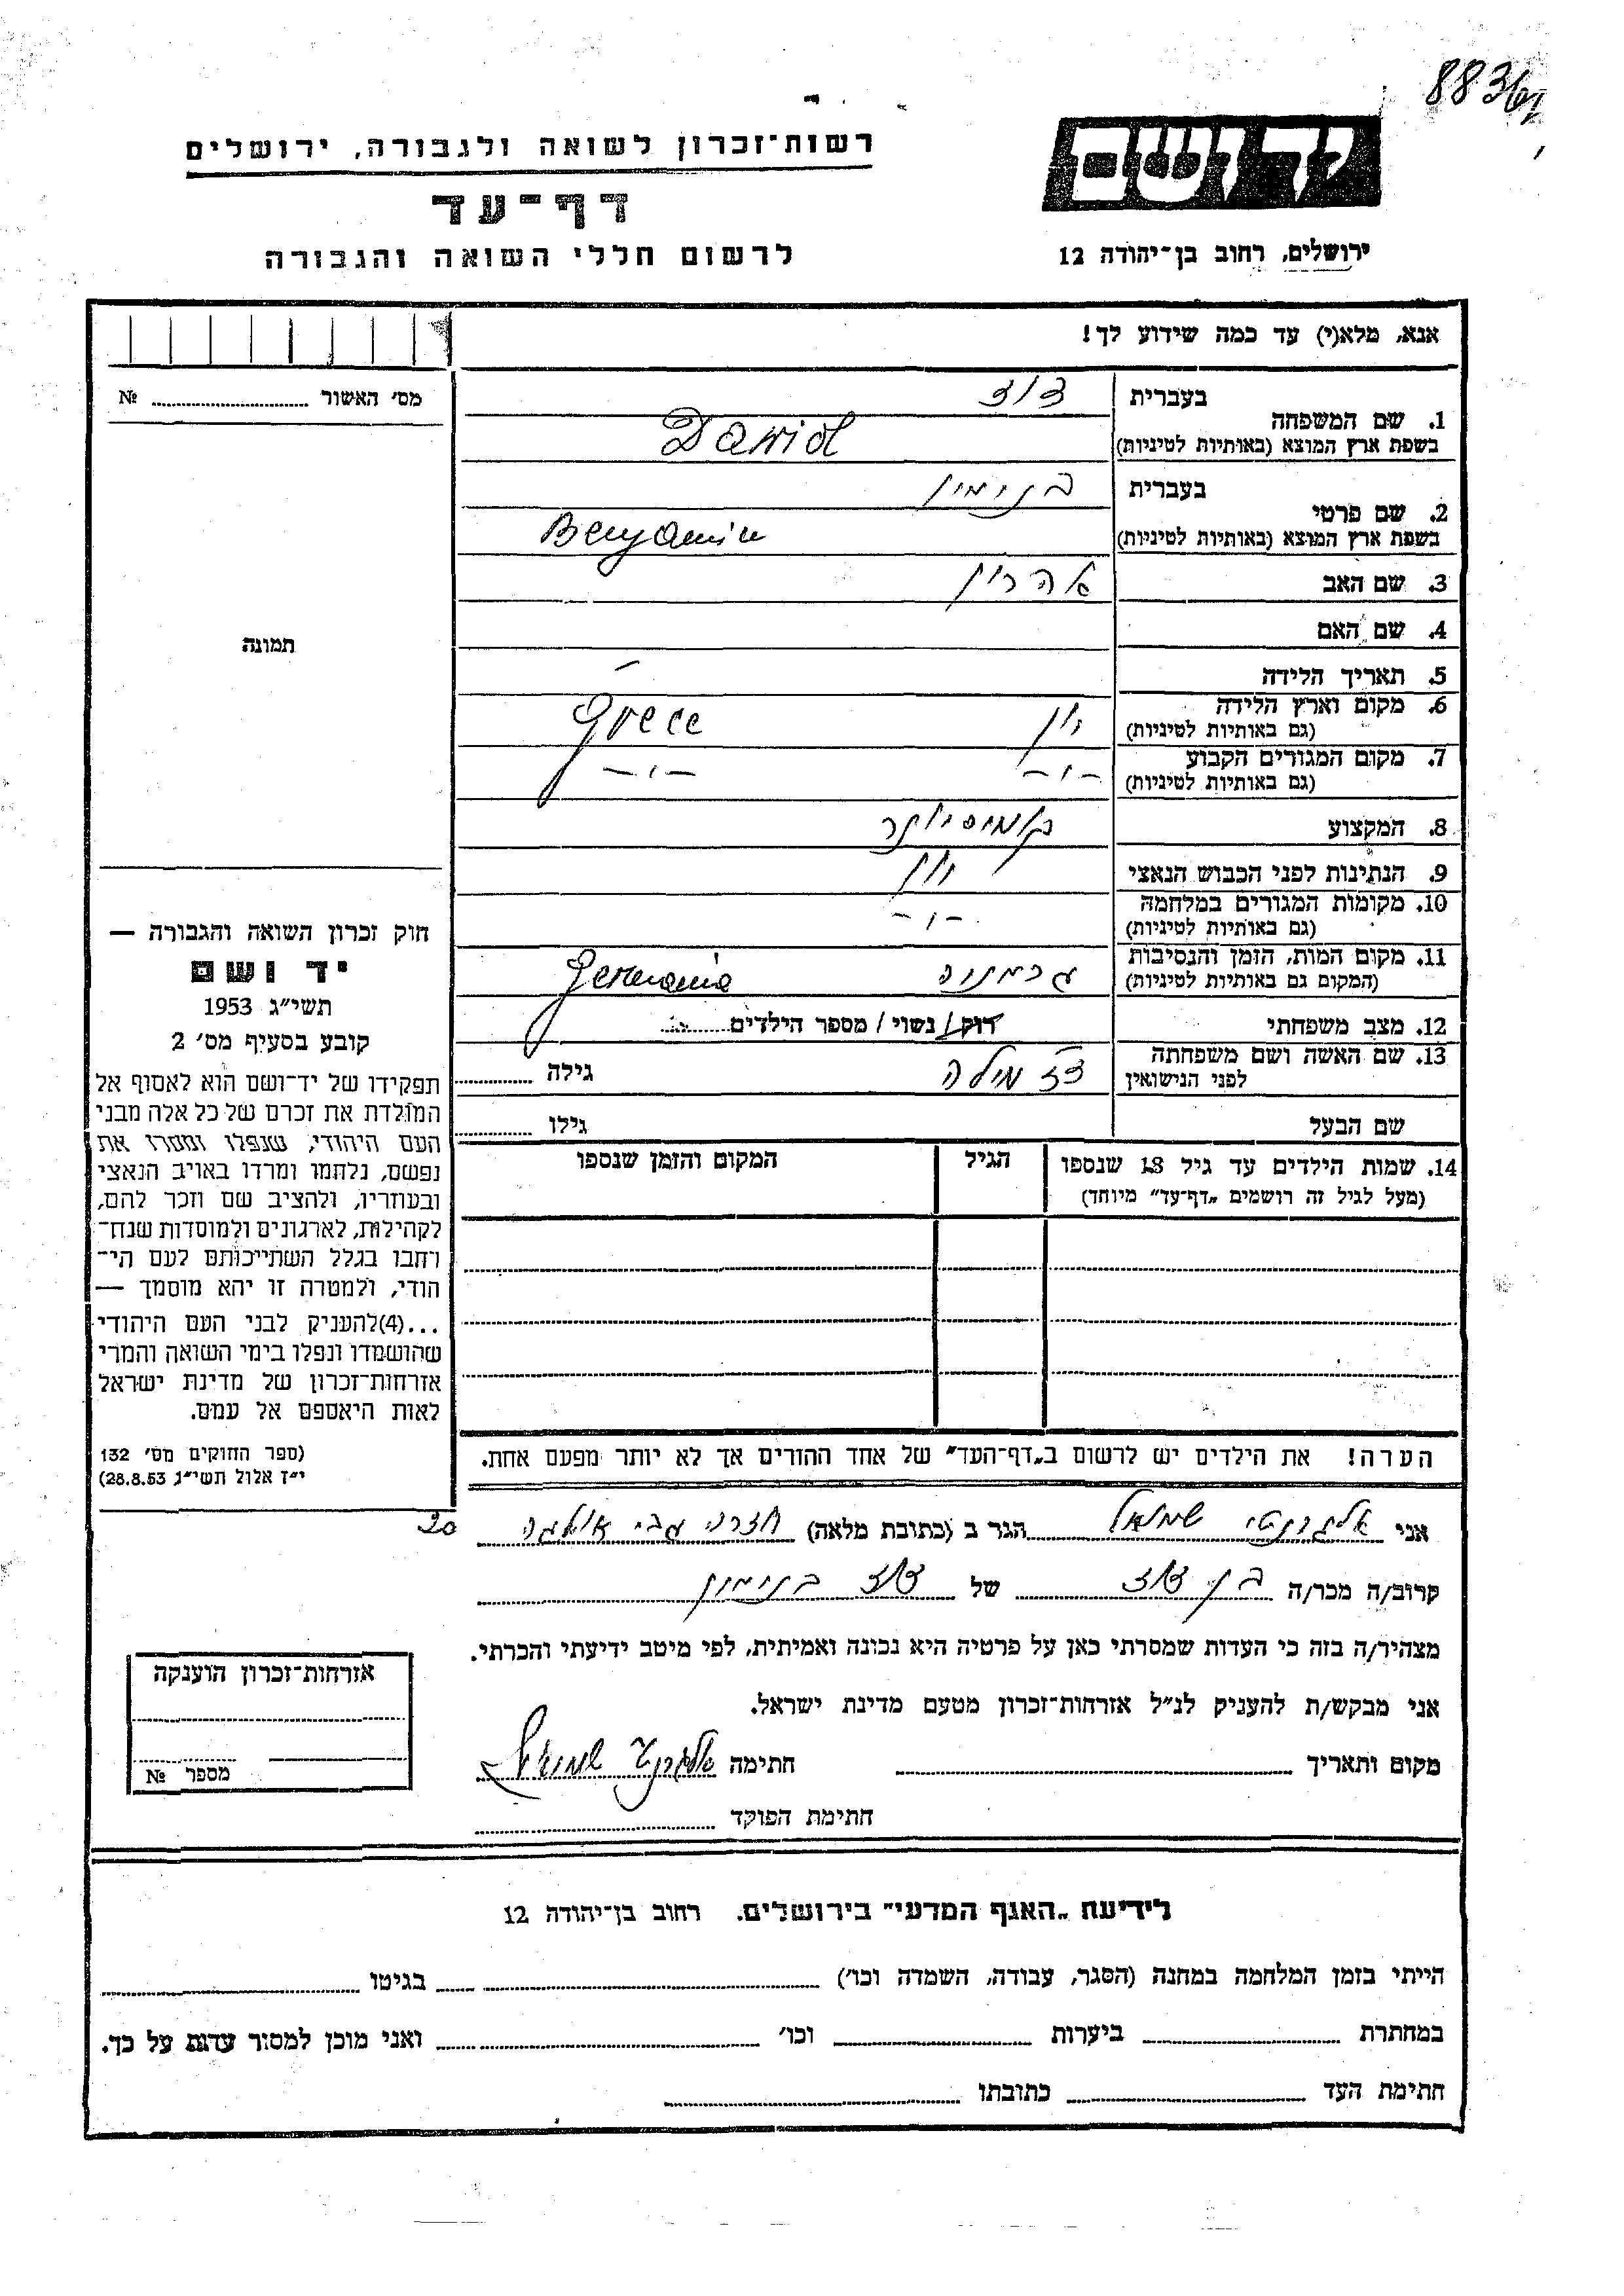 88361
רשות־זכרון לשואה ולגבורה, ירושלים
יד ושם
דף־עד
לרשום חללי השואה והגבורה
ירושלים, רחוב בן־יהודה 12
אנא, מלא(י) עד כמה שידוע לך!
מס' האשור № 
1. שם המשפחה בעברית דוד
בשפת ארץ המוצא (באותיות לטיניות) David
2. שם פרטי בעברית בנימין
בשפת ארץ המוצא (באותיות לטיניות) Benjamin
3. שם האב אהרון
4. שם האם
תמונה
5. תאריך הלידה –
6. מקום וארץ הלידה (גם באותיות לטיניות) יון Grece
7. מקום המגורים הקבוע (גם באותיות לטיניות) –״– –״–
8. המקצוע קומיסיונר
9. הנתינות לפני הכבוש הנאצי יון
10. מקומות המגורים במלחמה (גם באותיות לטיניות) –״–
11. מקום המות, הזמן והנסיבות (המקום גם באותיות לטיניות) גרמניה Germania
12. מצב משפחתי רוק/ נשוי / מספר הילדים
13. שם האשה ושם משפחתה לפני הנישואין גילה
שם הבעל גילו
14. שמות הילדים עד גיל 18 שנספו הגיל המקום והזמן שנספו
(מעל לגיל זה רושמים „דף־עד" מיוחד)
חוק זכרון השואה והגבורה —
יד ושם
תשי״ג 1953
קובע בסעיף מס' 2
תפקידו של יד־ושם הוא לאסוף אל
המולדת את זכרם של כל אלה מבני
העם היהודי, שנפלו ומסרו את
נפשם, נלחמו ומרדו באויב הנאצי
ובעוזריו, ולהציב שם וזכר להם,
לקהילות, לארגונים ולמוסדות שנח־
רחבו בגלל השתייכותם לעם הי־
הודי, ולמטרה זו יהא מוסמך —
...(4) להעניק לבני העם היהודי
שהושמדו ונפלו בימי השואה והמרי
אזרחות־זכרון של מדינת ישראל
לאות היאספם אל עמם.
(ספר החוקים מס' 132
י״ז אלול תשי״ג 28.8.53)
הערה! את הילדים יש לרשום ב„דף־העד" של אחד ההורים אך לא יותר מפעם אחת.
אני שמואל הגר ב (כתובת מלאה) חדרה 20
קרוב/ה מכר/ה בן דוד של דוד בנימין
מצהיר/ה בזה כי העדות שמסרתי כאן על פרטיה היא נכונה ואמיתית, לפי מיטב ידיעתי והכרתי.
אני מבקש/ת להעניק לנ״ל אזרחות־זכרון מטעם מדינת ישראל.
מקום ותאריך חתימה שמואל
חתימת הפוקד
אזרחות־זכרון הוענקה
מספר №
לידיעת „האגף המדעי" בירושלים. רחוב בן־יהודה 12
הייתי בזמן המלחמה במחנה (הסגר, עבודה, השמדה וכו') בגיטו
במחתרת ביערות וכו' ואני מוכן למסור עדות על כך.
חתימת העד כתובתו